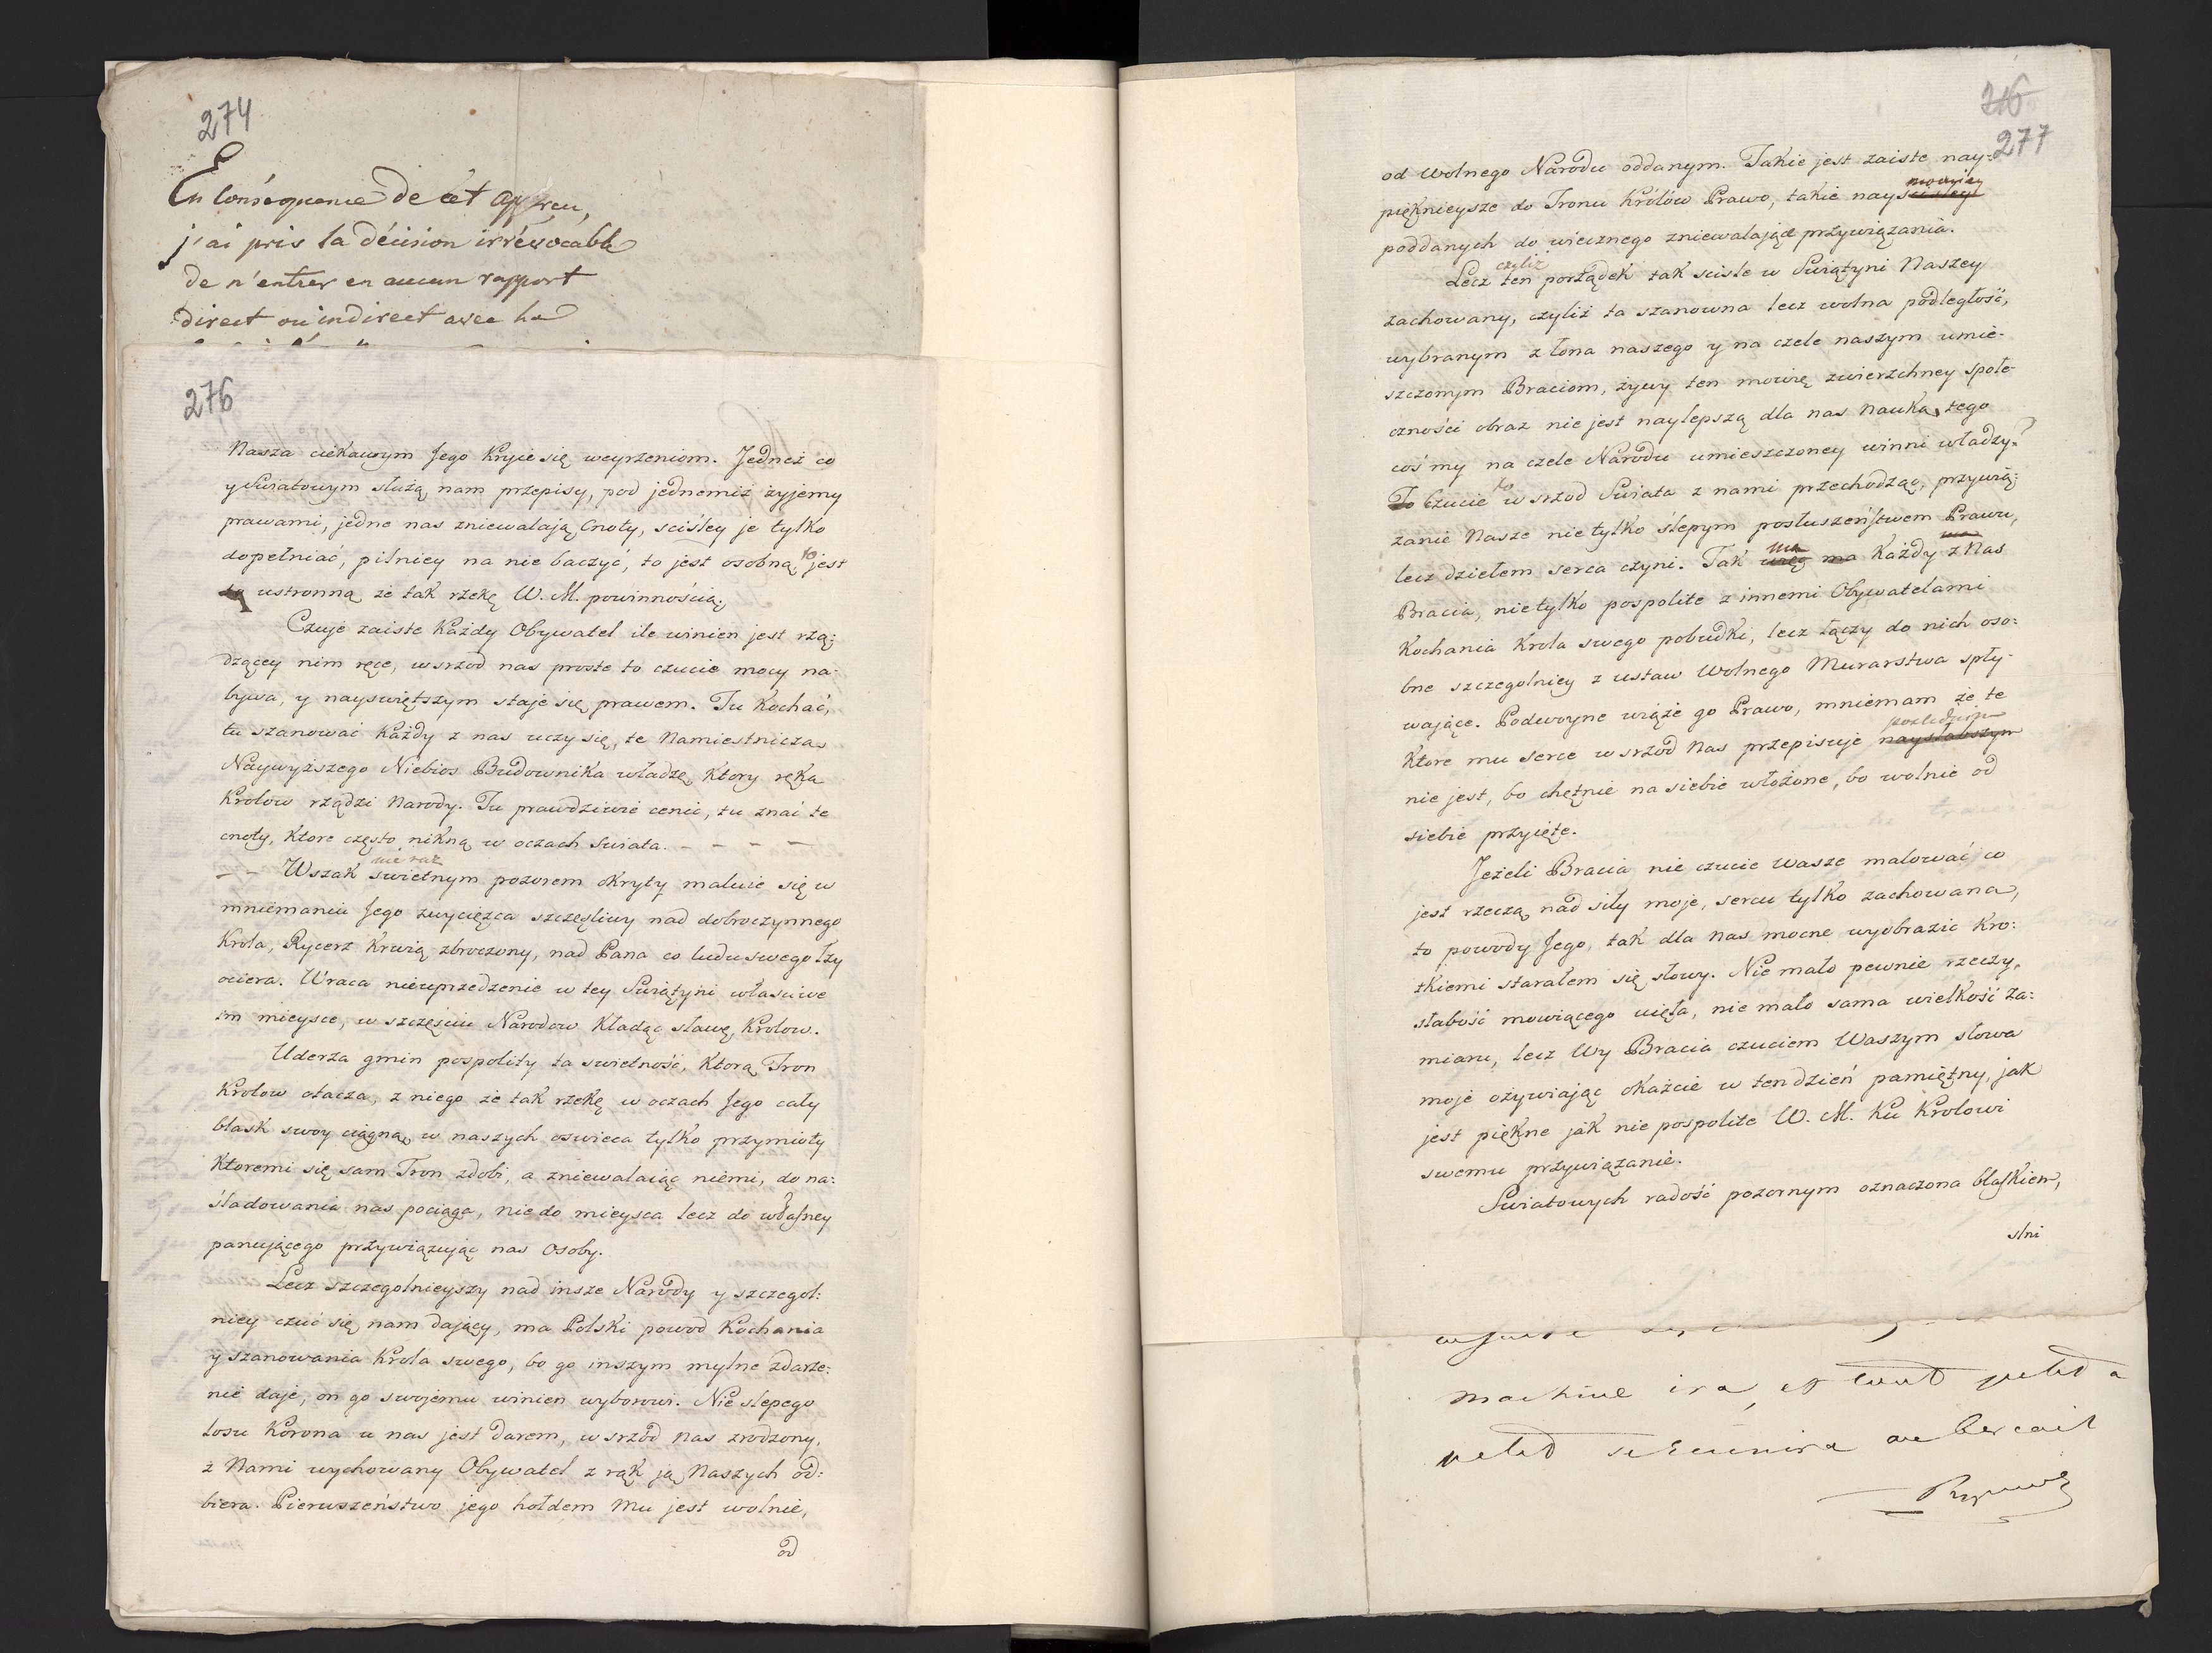 274
En Conséquence de cet apperçu,
j'ai pris la décision irrévocable
de n'entrer en aucun rapport
direct ou indirect avec la
276
Nasza ciekawym Jego kryje się weyrzeniom. Jedneż co
y Swiatowym służą nam przepisy, pod jednemiż żyjemy
prawami, jedne nas zniewalają Cnoty, sciśley je tylko
dopełniać, pilniey na nie baczyć, to jest osobną to jest
ustronną że tak rzekę W. M. powinnością.
Czuje zaiste Każdy Obywatel ile winien jest rzą:
dzącey nim ręce, wsrzod nas proste to czucie mocy na-
bywa, y nayswiętszym staje się prawem. Tu Kochać,
tu szanować Każdy z nas uczy się, te Namiestniczą
Naywyższego Niebios Budownika władzę, Ktory ręką
Krolow rządzi Narody. Tu prawdziwie cenić, tu znać te
cnoty, Ktore często nikną w oczach Swiata. - - - -
nie raz
- - Wszak swietnym pozorem okryty maluie się w
mniemaniu Jego zwycięzca szczęsliwy nad dobroczynnego
Krola, Rycerz Krwią zbroczony, nad Pana co ludu swego łzy
ociera. Wraca nieuprzedzenie w tey Swiątyni własciwe
im mieysce, w szczęsciu Narodow Kładąc sławę Krolow.
Uderza gmin pospolity ta swietność, Ktorą Tron
Krolow otacza, z niego że tak rzekę w oczach Jego cały
blask swoy ciągną, w naszych oswieca tylko przymioty
Ktoremi się sam Tron zdobi, a zniewalaiąc niemi, do na:
śladowania nas pociąga, nie do mieysca lecz do własney
panującego przywiązując nas Osoby.
Lecz szczegolnieyszy nad insze Narody y szczegol:
niey czuć się nam dający, ma Polski powod Kochania
y szanowania Krola swego, bo go inszym mylne zdarze:
nie daje, on go swojemu winien wyborowi. Nie slepego
losu Korona u nas jest darem, wsrzod nas zrodzony,
z Nami wychowany Obywatel z rąk ją Naszych od:
biera. Pierwszeństwo jego hołdem Mu jest wolnie,
od
216
277
od Wolnego Narodu oddanym. Takie jest zaiste nay-
mocniey
pięknieysze do Tronu Królów Prawo, takie nayscisley
poddanych do wiecznego zniewalające przywiązania.
czyliż
Lecz ten porządek tak scisle w Swiątyni Naszey
zachowany, czyliż ta szanowna lecz wolna podległość,
wybranym z łona naszego y na czele naszym umie-
szczonym Braciom, żywy ten mowię zwierzchney społe-
czności obraz nie jest naylepszą dla nas Nauką, tego
cośmy na czele Narodu umieszczoney winni władzy?
To Czucie to wsrzod Swiata z nami przechodząc, przywią:
zanie Nasze nie tylko ślepym posłuszeństwem Prawu,
lecz dziełem serca czyni. Tak ma więc ma Każdy z Nas
Bracia, nie tylko pospolite z innemi Obywatelami
Kochania Krola swego pobudki, lecz łączy do nich oso:
bne szczegolniey z ustaw Wolnego Murarstwa spły-
wające. Podwoyne wiąże go Prawo, mniemam że te
poslednim
Ktore mu serce wsrzod Nas przepisuje naysłabszym
nie jest, bo chętnie na siebie włożone, bo wolnie od
siebie przyięte.
Jeżeli Bracia nie czucie Wasze malować co
jest rzeczą nad siły moje, sercu tylko zachowaną,
to powody Jego, tak dla Nas mocne wyobrazić Kro:
tkiemi starałem się słowy. Nie mało pewnie rzeczy,
słabość mowiącego uięła, nie mało sama wielkość za:
miaru, lecz Wy Bracia czuciem Waszym słowa
moje ożywiając okażcie w ten dzień pamiętny, jak
jest piękne jak nie pospolite W. M. Ku Krolowi
swemu przywiązanie.
Swiatowych radość pozornym oznaczona blaskiem,
slni
machine ira, et tout